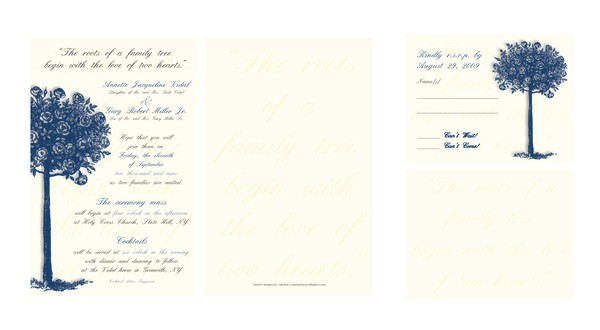 "The roots of a family tree
begin with the love of two hearts."
Annette Jacqueline Vidal
Daughter of Mr. and Mrs. Dick Vidal
&
Gary Robert Miller Jr.
Son of Mr. and Mrs. Gary Miller Sr.
Hope that you will
join them on
Friday, the eleventh
of September
two thousand and nine
as two families are united.
The ceremony mass
will begin at four o'clock in the afternoon
at Holy Cross Church, Slate Hill, NY.
Cocktails
will be served at six o'clock in the evening
with dinner and dancing to follow
at the Vidal home in Greenville, NY
Cocktail Attire Required
"The roots
of a
family tree
begin with
the love of
two hearts."
Kindly r.s.v.p. by
August 29, 2009
Name(s)
Can't Wait!
Can't Come!